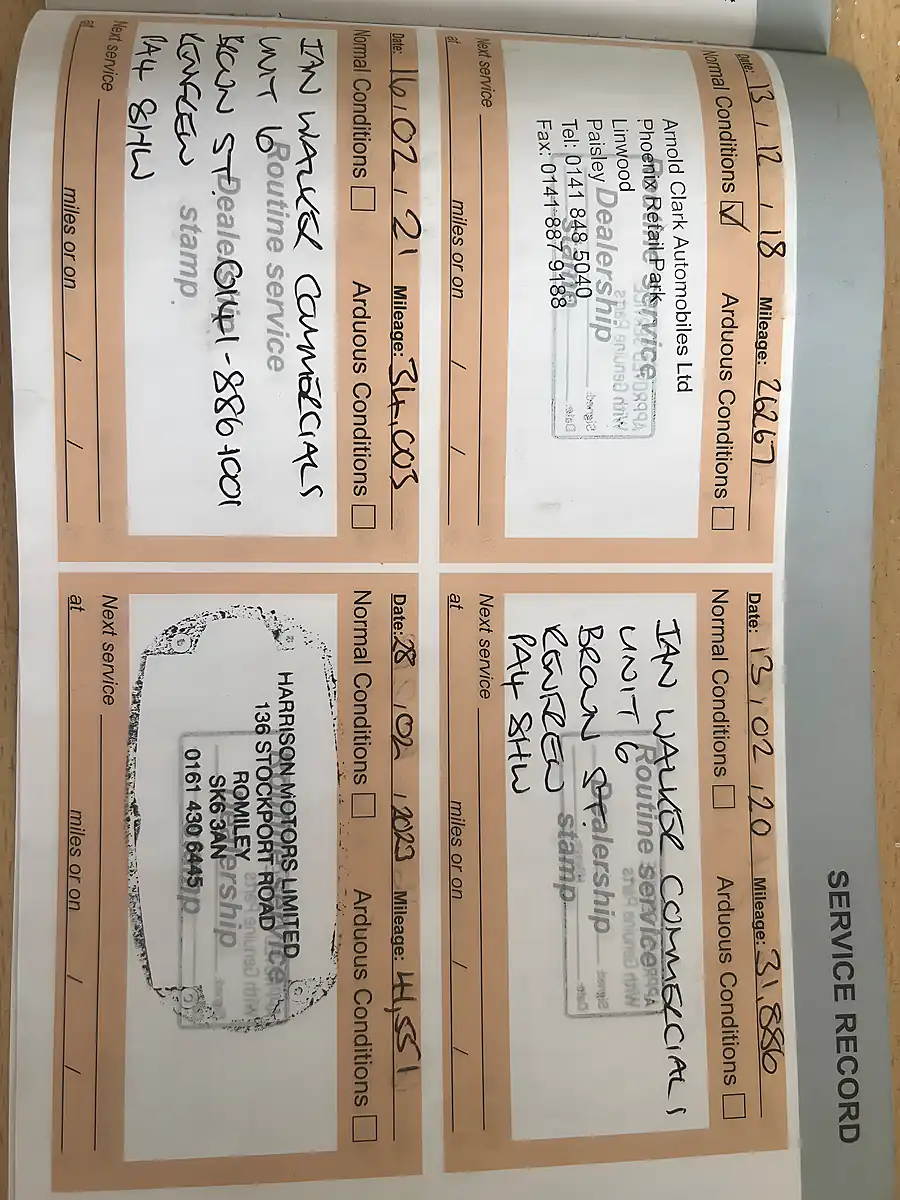 SERVICE RECORD
Date: 13 / 12 / 18 Mileage: 26267
Normal Conditions ☑ Arduous Conditions ☐
Arnold Clark Automobiles Ltd
Phoenix Retail Park
Linwood
Paisley
Tel: 0141 848 5040
Fax: 0141 887 9188
Routine service
Dealership
stamp
Next service
at miles or on / /
Date: 13 / 02 / 20 Mileage: 31,886
Normal Conditions ☐ Arduous Conditions ☐
IAN WALKER COMMERCIALS
UNIT 6
BROWN ST.
RENFREW
PA4 8HW
Routine service
Dealership
stamp
Next service
at miles or on / /
Date: 16 / 02 / 21 Mileage: 34,003
Normal Conditions ☐ Arduous Conditions ☐
IAN WALKER COMMERCIALS
UNIT 6
BROWN ST. 0141-886-1001
RENFREW
PA4 8HW
Routine service
Dealership
stamp
Next service
at miles or on / /
Date: 28 / 02 / 2023 Mileage: 41,551
Normal Conditions ☐ Arduous Conditions ☐
HARRISON MOTORS LIMITED
136 STOCKPORT ROAD
ROMILEY
SK6 3AN
0161 430 6445
Routine service
Dealership
stamp
Next service
at miles or on / /